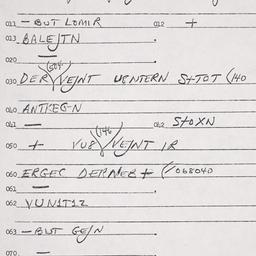 011 — BUT LOMIR 012 +
013 BALEJTN
020 —
(504)
030 DER VEJNT UNTERN S+TOT (140
040 ANTKEGN
041 — 042 S+OXN
(146)
050 + VU8 VEJNT IR
060 ERGEC DERNEB + (/068040
061 —
062 VUN1T12
063 — BUT GEJN
070 —